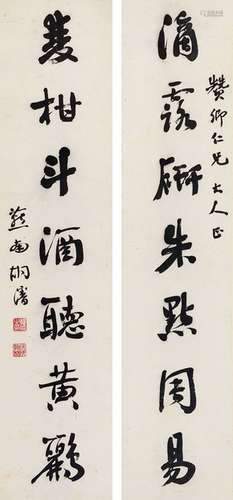 滴露研朱點周易
贊卿仁兄大人正
雙柑斗酒聽黃鸝
胡